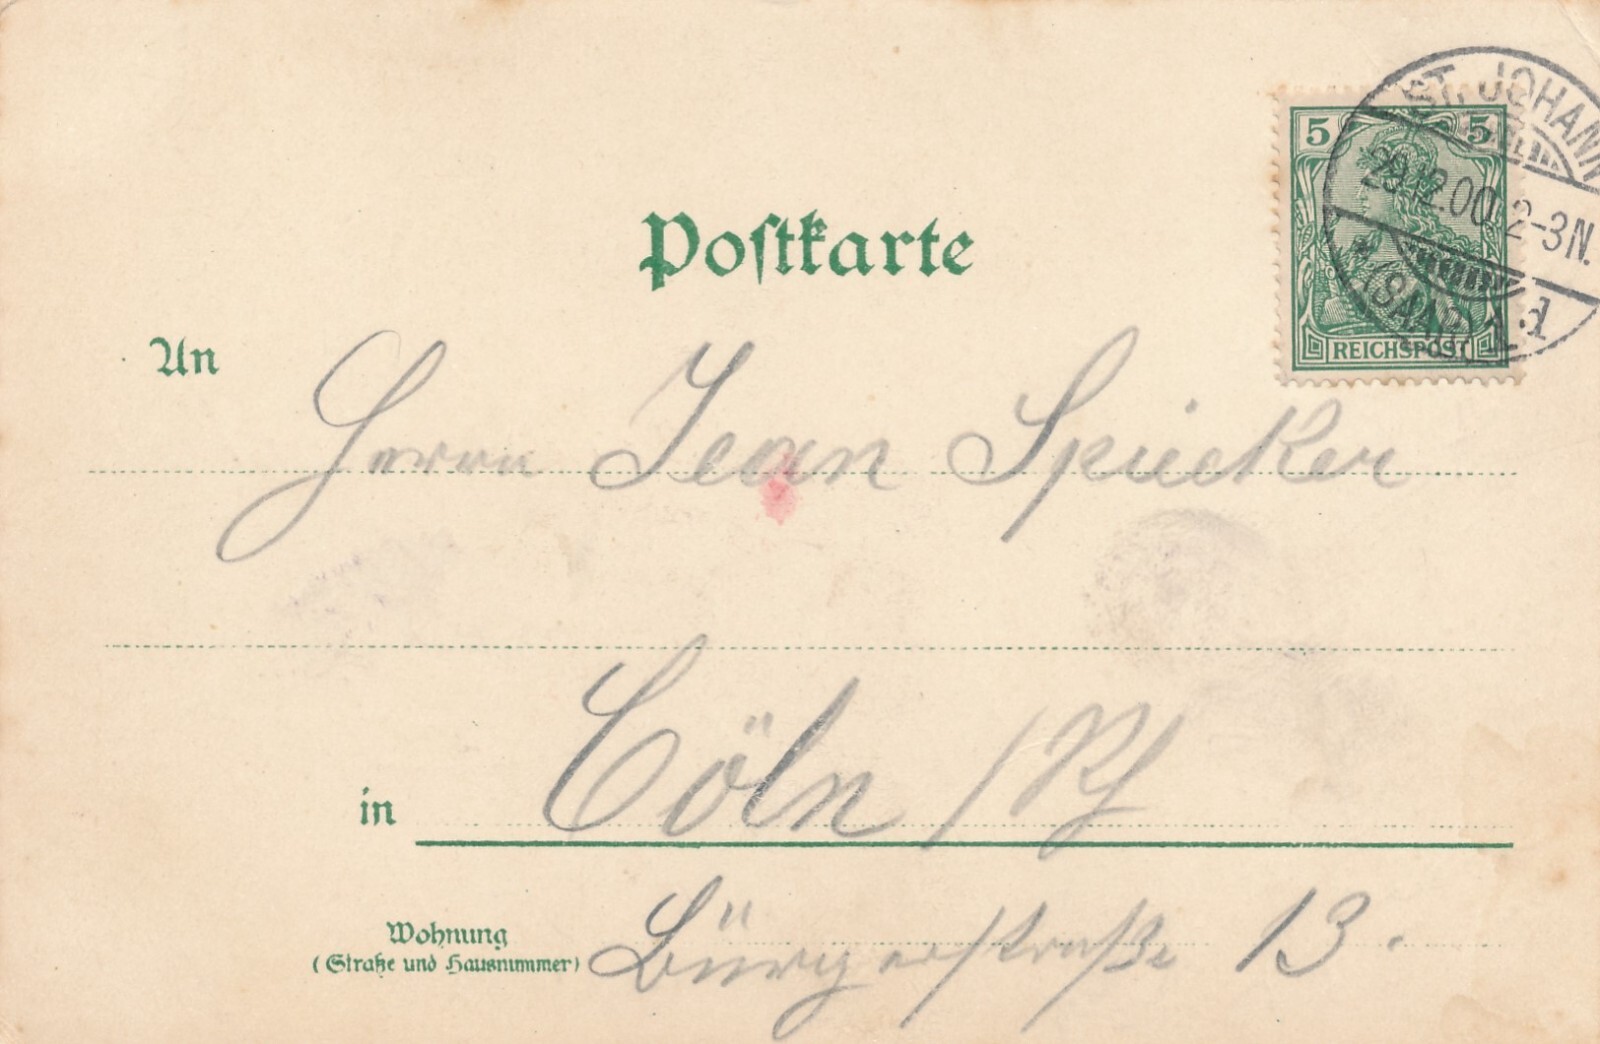 Postkarte
5 5
REICHSPOST
ST. JOHANN
29.12.00. 2-3N.
* (SAAR) 1 d
An
Herrn Jean Spiecker
in
Cöln /Rh
Wohnung
(Straße und Hausnummer)
Bürgerstraße 13.